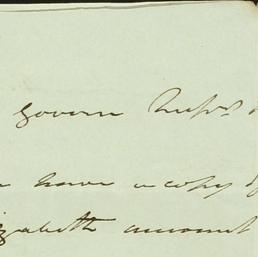 govern
have a copy of
izabeth amount